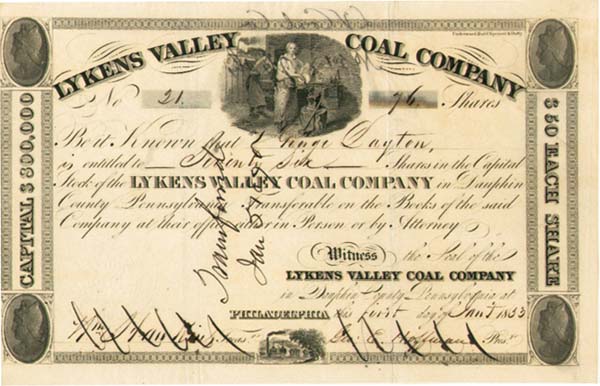 LYKENS VALLEY COAL COMPANY
Underwood Bald Spencer & Hufty
No 21. 76. Shares
Be it Known that George Dayton,
is entitled to Seventy Six Shares in the Capital
Stock of the LYKENS VALLEY COAL COMPANY in Dauphin
County Pennsylvania Transferable on the Books of the said
Company at their office in Person or by Attorney
Witness the Seal of the
LYKENS VALLEY COAL COMPANY
in Dauphin County Pennsylvania at
PHILADELPHIA this first day of Jany 1853
Treasr.
Geo. E. Hoffman Prest.
CAPITAL $ 300,000
$ 50 EACH SHARE
Transferred
Jan